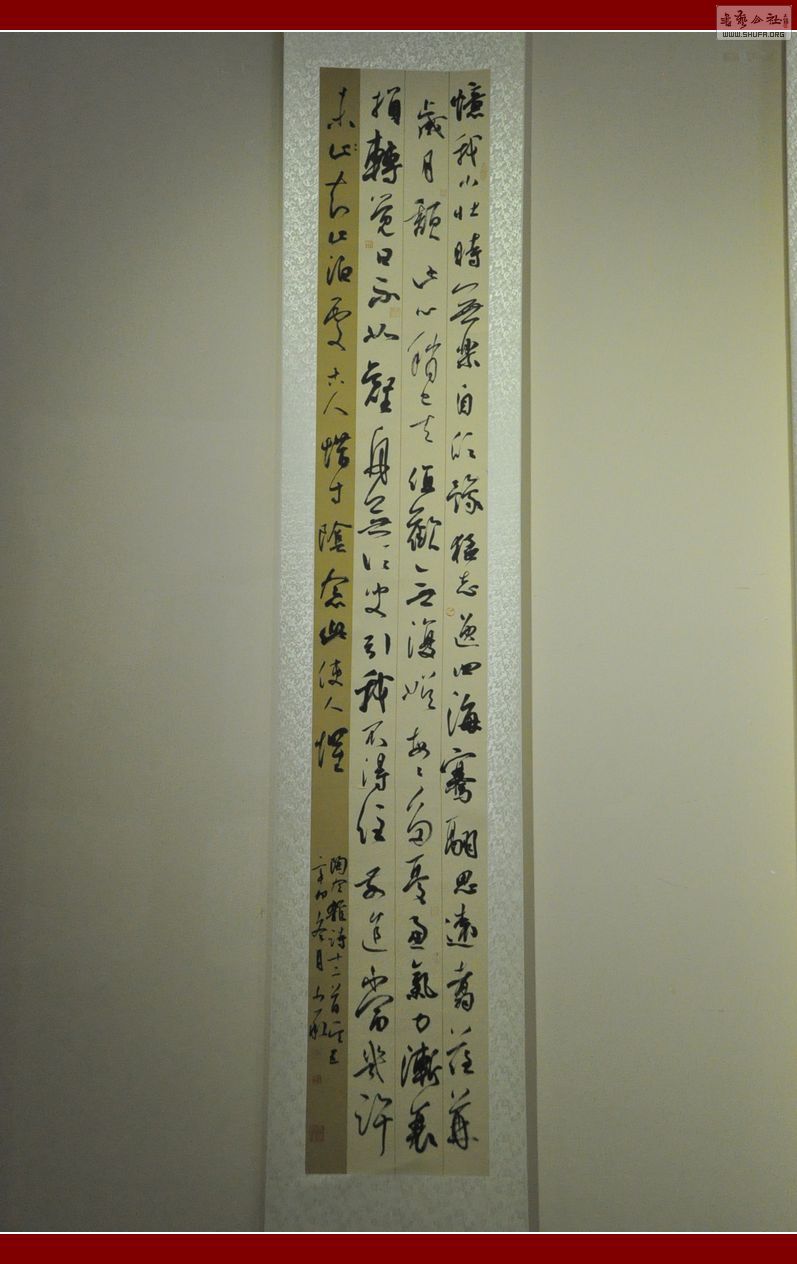 書藝公社
WWW.SHUFA.ORG
憶我少壯時無樂自欣豫猛志逸四海騫翮思遠翥荏苒
歲月頹此心稍已去值歡無復娛每々多憂慮氣力漸衰
損轉覺日不如壑舟無須臾引我不得住前途當幾許
未止知止泊處古人惜寸陰念此使人懼
陶雜詩十二首之五
辛卯冬月